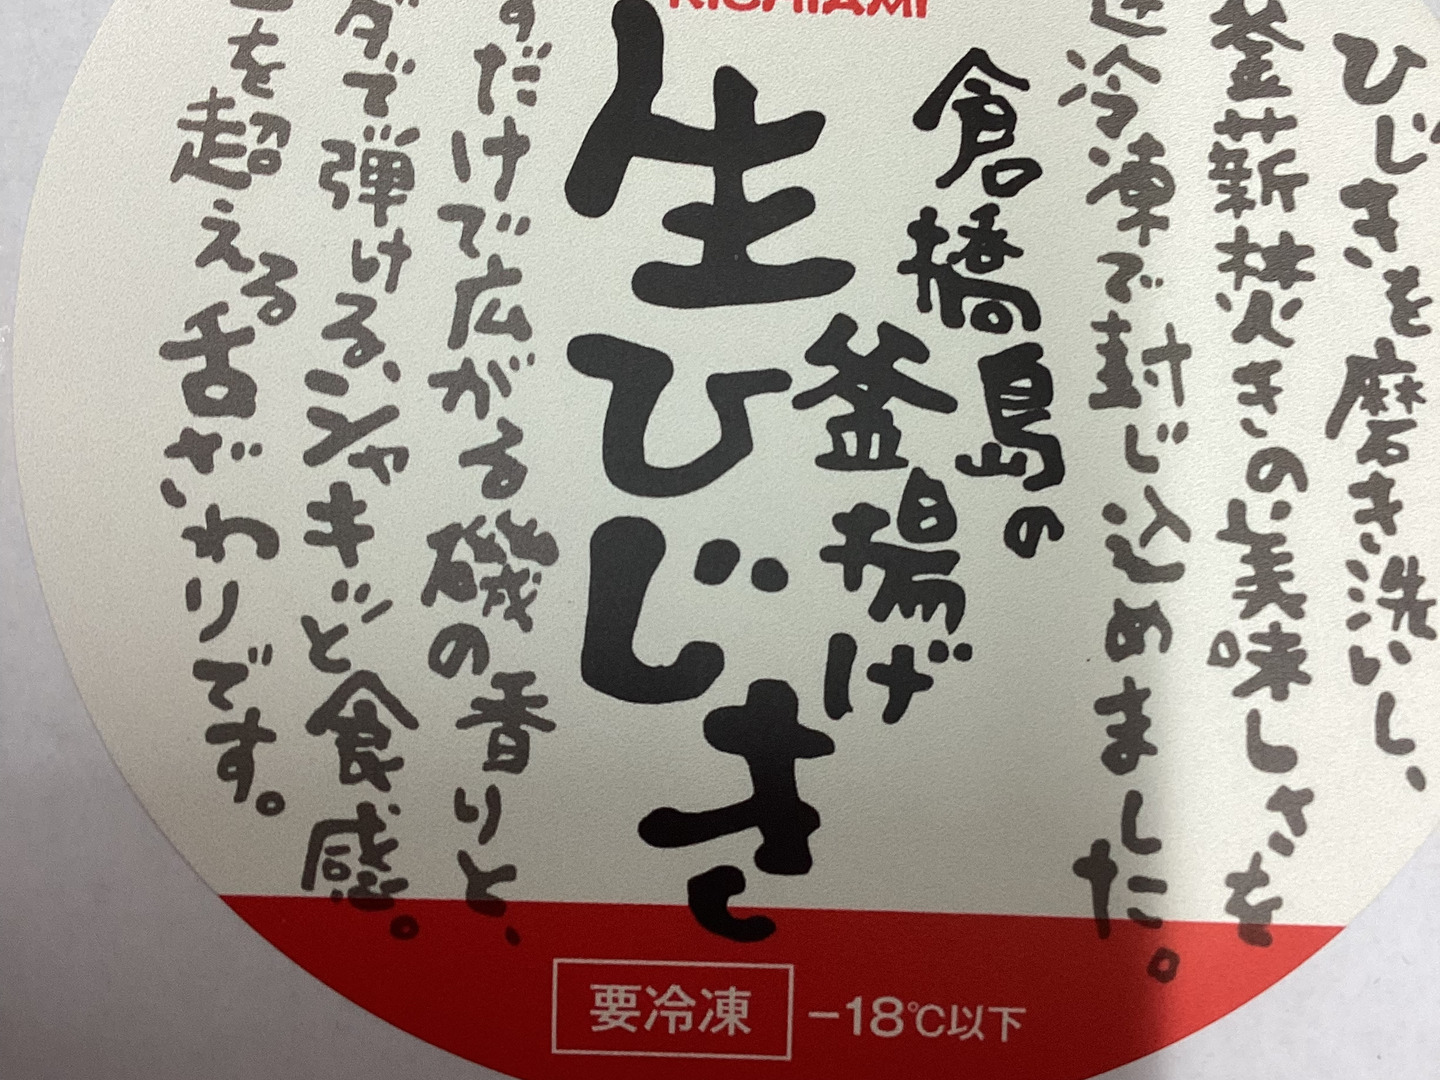 KISHIAMI
ひじきを磨き洗いし、
釜薪焚きの美味しさを
冷凍で封じ込めました。
倉橋島の
釜揚げ
生ひじき
だけで広がる磯の香りと、
ダで弾ける、シャキッと食感。
を超える舌ざわりです。
要冷凍 −18℃以下